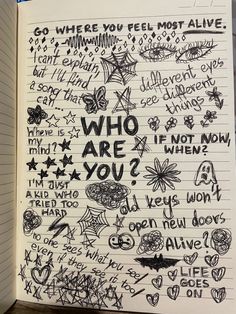 GO WHERE YOU FEEL MOST ALIVE.
I can't explain,
but I'll find
a song that
can...
different eyes
see different
things
Where is
my
mind?
WHO
ARE
YOU?
IF NOT NOW,
WHEN?
I'M JUST
A KID WHO
TRIED TOO
HARD
old keys won't
open new doors
Alive?
no one sees what you see
even if they see it too
LIFE
GOES
ON